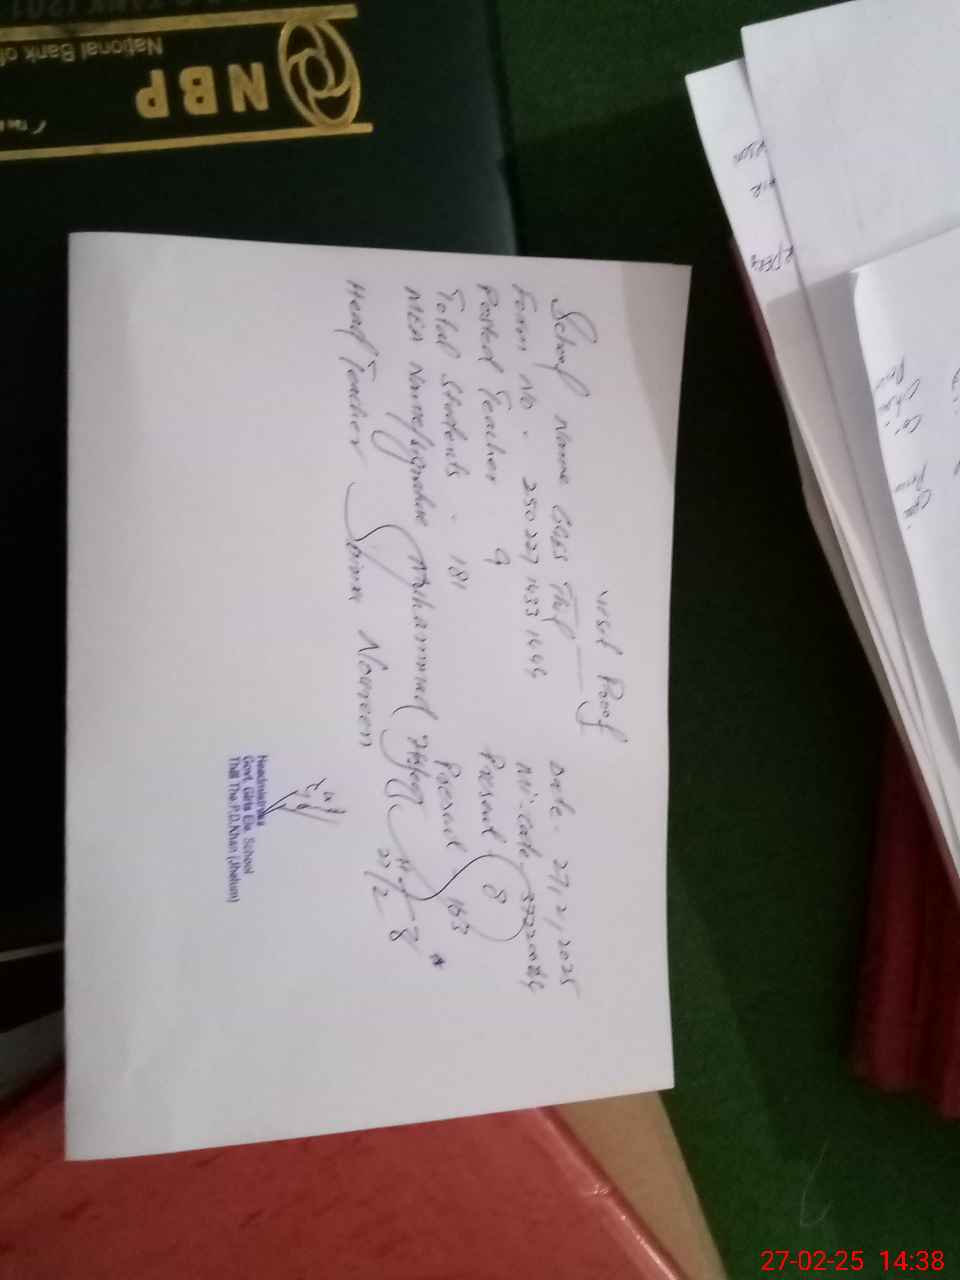 NBP
National Bank of
Visit Proof
School Name GGES Thil Date. 27/2/2025
Form No. 250227 1433 1444 MI-Code
Posted Teacher 9 Present 8
Total Students. 181 Present 163
MEA Name/signature Muhammad
27/2
Head Teacher Noureen
Headmistress
Govt. Girls Ele. School
Thill The.P.D.Khan (Jhelum)
27-02-25 14:38